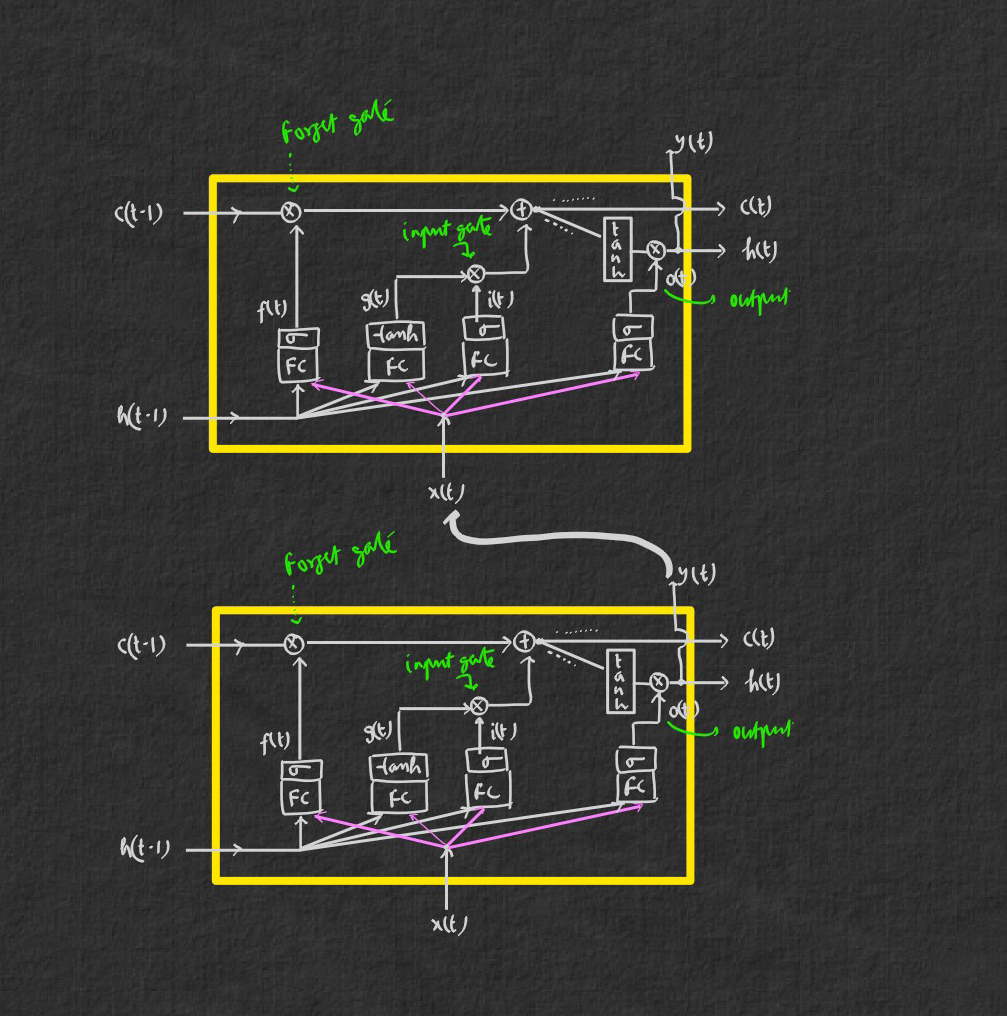 Forget gate
y(t)
c(t-1)
×
+
c(t)
input gate
t
a
n
h
×
h(t)
×
o(t)
output
f(t)
g(t)
i(t)
σ
tanh
σ
σ
FC
FC
FC
FC
h(t-1)
x(t)
Forget gate
y(t)
c(t-1)
×
+
c(t)
input gate
t
a
n
h
×
h(t)
×
o(t)
output
f(t)
g(t)
i(t)
σ
tanh
σ
σ
FC
FC
FC
FC
h(t-1)
x(t)